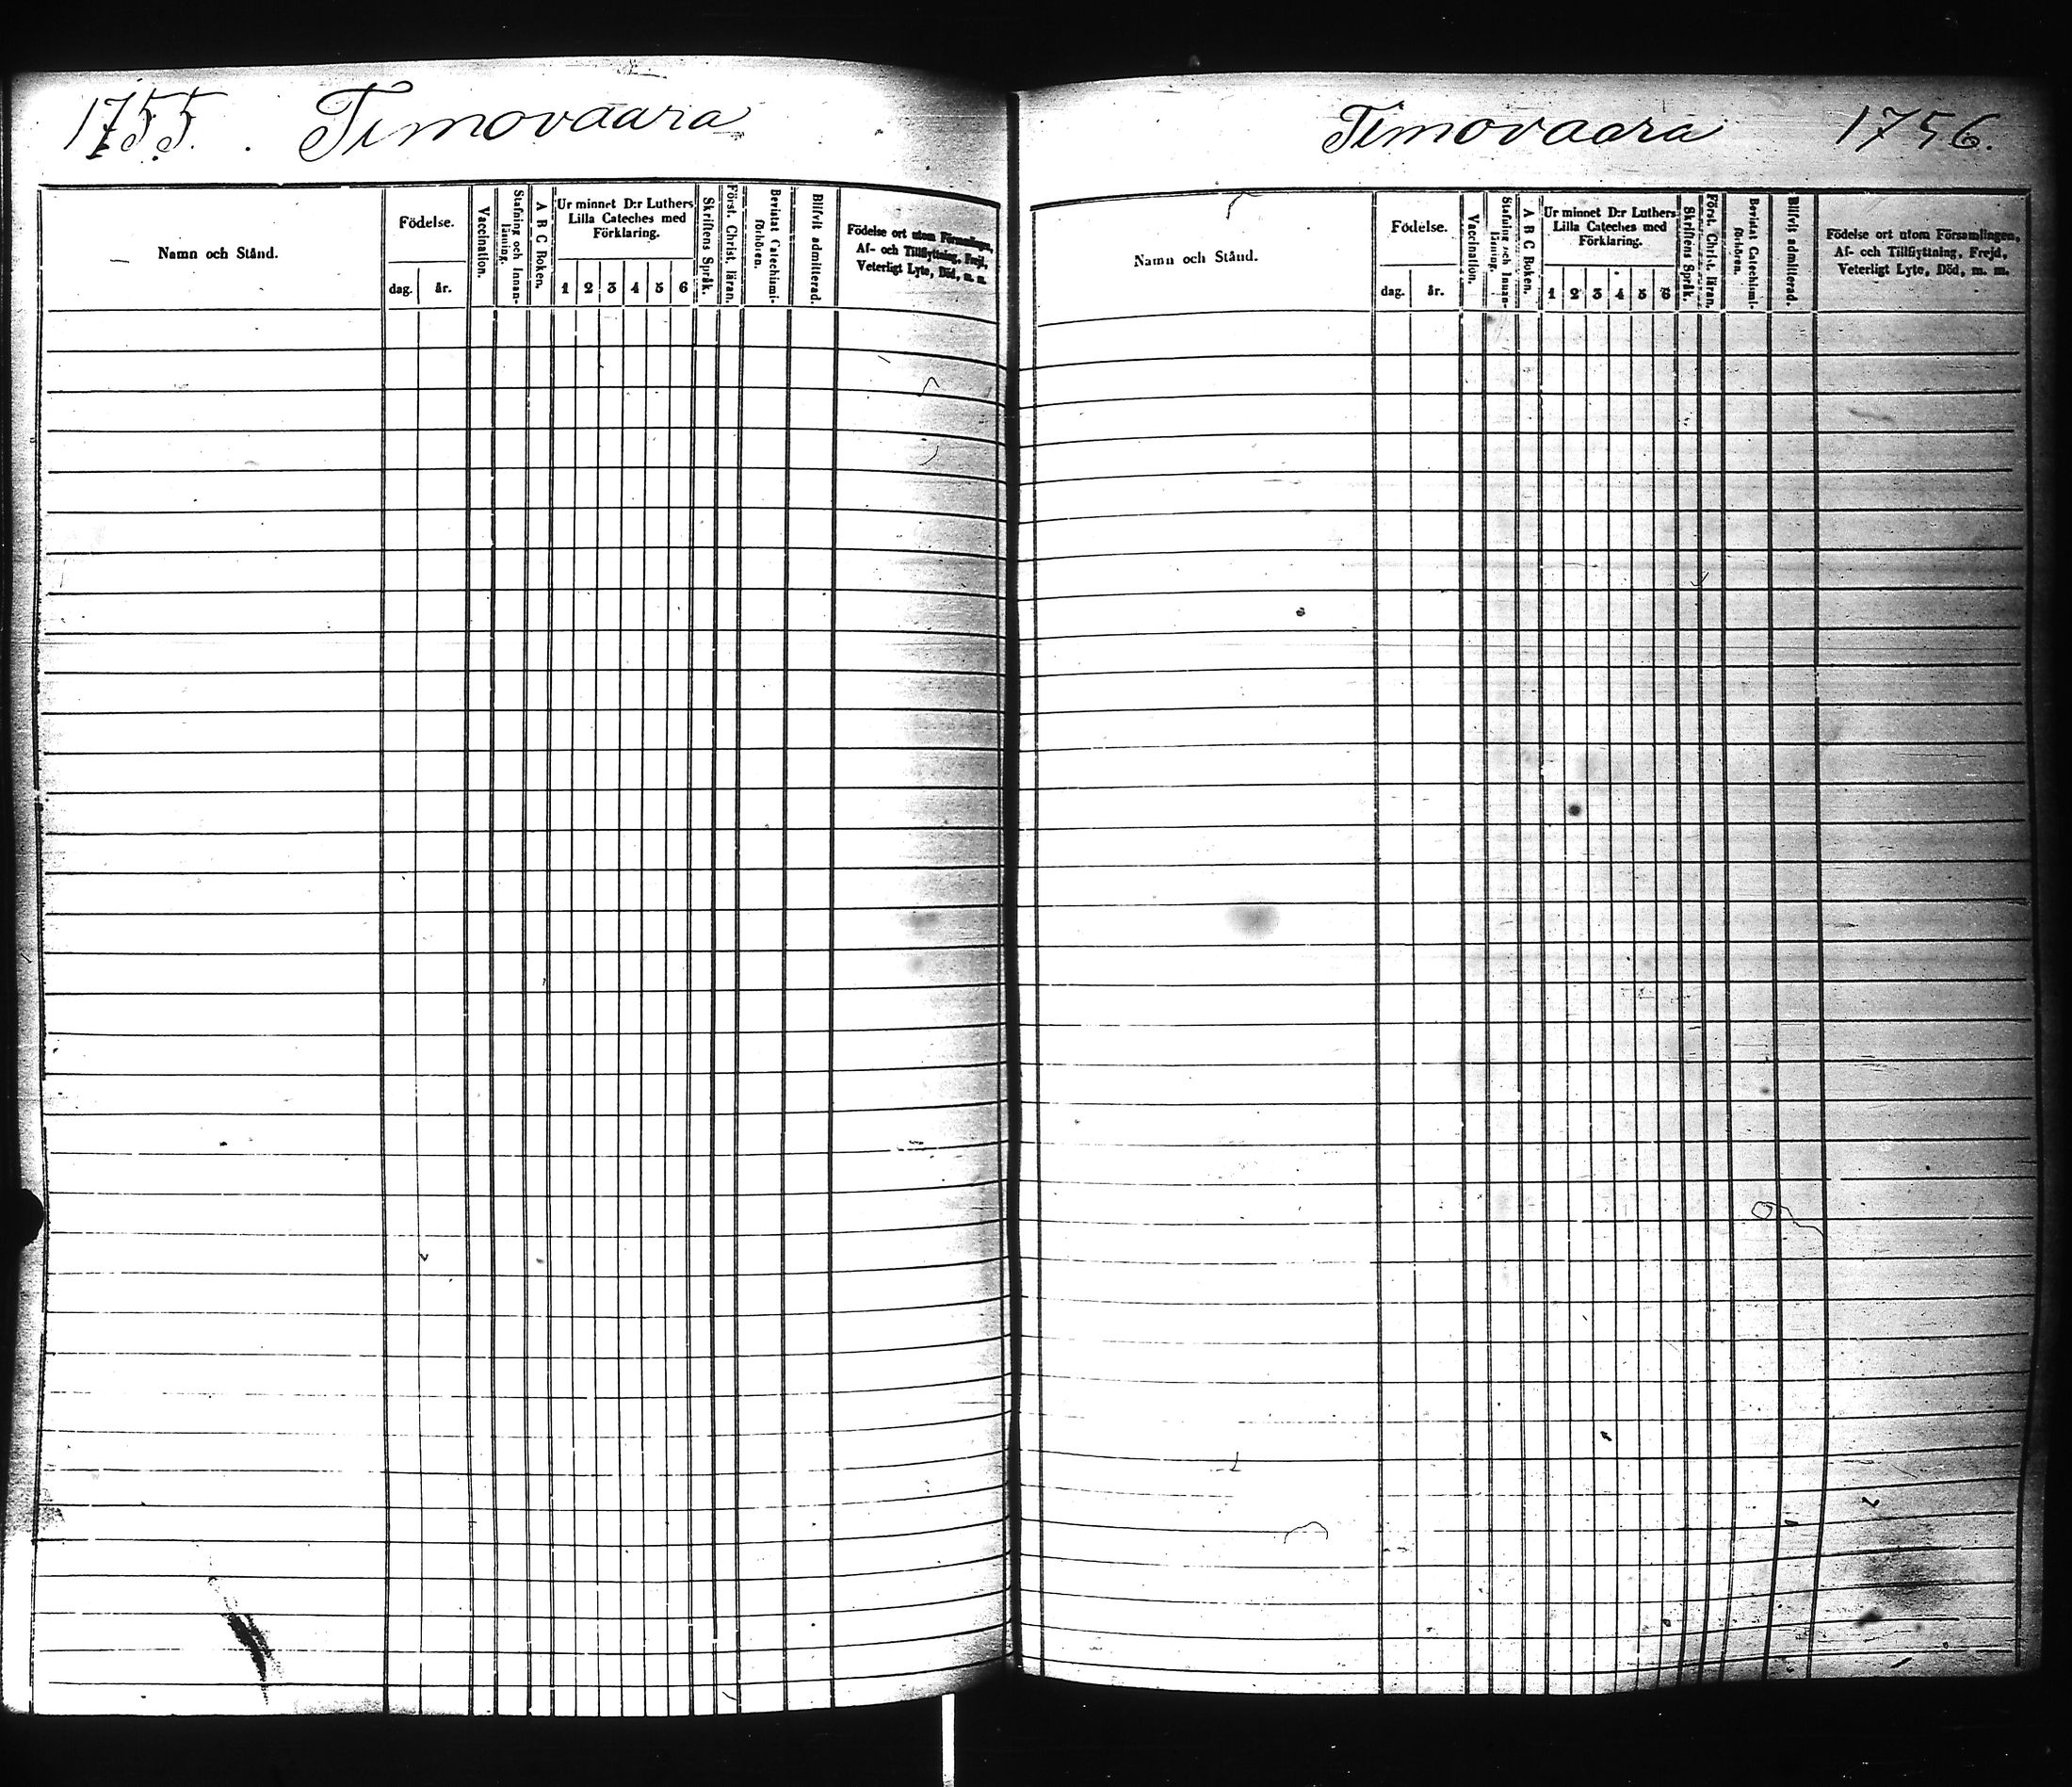 1755. Timovaara
Namn och Stånd.
Födelse.
dag.
år.
Vaccination.
Stafning och Innan-
läsning.
A B C Boken.
Ur minnet D:r Luthers
Lilla Cateches med
Förklaring.
1 2 3 4 5 6
Skriftens Språk.
Först. Christ. läran.
Bevistat Catechismi-
förhören.
Blifvit admitterad.
Födelse ort utom Församlingen,
Af- och Tillflyttning, Frejd,
Veterligt Lyte, Död, m. m.
Timovaara 1756.
Namn och Stånd.
Födelse.
dag.
år.
Vaccination.
Stafning och Innan-
läsning.
A B C Boken.
Ur minnet D:r Luthers
Lilla Cateches med
Förklaring.
1 2 3 4 5 6
Skriftens Språk.
Först. Christ. läran.
Bevistat Catechismi-
förhören.
Blifvit admitterad.
Födelse ort utom Församlingen,
Af- och Tillflyttning, Frejd,
Veterligt Lyte, Död, m. m.